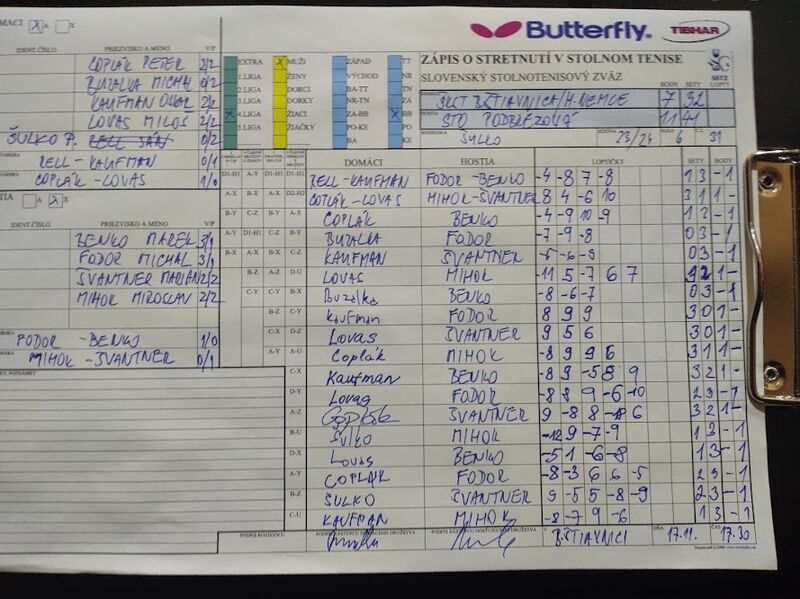 MÁCI X A X
Butterfly. TIBHAR
IDENT.ČÍSLO PRIEZVISKO A MENO V/P
COPLÁK PETER 2/2
BUZALKA MICHAL 0/2
KAUFMAN OTKAR 2/2
LOVAS MILOŠ 2/2
ŠULKO P.
RELL - KAUFMAN 0/1
COPLÁK - LOVAS 1/0
EXTRA X MUŽI ZÁPAD TT
1.LIGA ŽENY VÝCHOD NR
2.LIGA DORCI BA-TT TN
3.LIGA DORKY NR-TN ZA
X 4.LIGA ŽIACI ZA-BB X BB
5.LIGA ŽIAČKY PO-KE PO
BA KE
ZÁPIS O STRETNUTÍ V STOLNOM TENISE
SLOVENSKÝ STOLNOTENISOVÝ ZVÄZ
BODY SETY LOPTY
ŠKST B.ŠTIAVNICA/H.NEMCE 7 32
STO PODBREZOVÁ 11 41
ŠULKO 23/24 6 31
TIA A X
IDENT.ČÍSLO PRIEZVISKO A MENO V/P
BENKO MAREK 3/1
FODOR MICHAL 3/1
ŠVANTNER MARIAN 2/2
MIHOK MIROSLAV 2/2
FODOR - BENKO 1/0
MIHOK - ŠVANTNER 0/1
KY, POZNÁMKY
DOMÁCI HOSTIA LOPTIČKY SETY BODY
D1-H1 A-Y D1-H1 D1-H1 RELL - KAUFMAN FODOR - BENKO -4 -8 7 -8 1 3 -1
A-X B-X C-Z D2-H2 COPLÁK - LOVAS MIHOK - ŠVANTNER 8 4 -6 10 3 1 1 -
B-Y C-Z B-Y A-X COPLÁK BENKO -4 -9 10 -9 1 3 -1
A-Y D1-H1 C-Z B-Y BUZALKA FODOR -7 -9 -8 0 3 -1
B-X A-X B-X C-Z KAUFMAN ŠVANTNER -5 -6 -9 0 3 -1
B-Z A-Z D-U LOVAS MIHOK -11 5 -7 6 7 3 2 1 -
C-Y C-Y B-X Buzalka BENKO -8 -6 -7 0 3 -1
B-Z C-Y Kaufman FODOR 8 9 9 3 0 1 -
C-X D-Z Lovas ŠVANTNER 9 5 6 3 0 1 -
A-Y A-U Coplák MIHOK -8 9 9 6 3 1 1 -
C-X Kaufman BENKO -8 9 -5 8 9 3 2 1 -
D-Y Lovas FODOR -8 8 9 -6 -10 2 3 -1
A-Z Coplák ŠVANTNER 9 -8 8 -8 6 3 2 1 -
B-U ŠULKO MIHOK -12 9 -7 -9 1 3 -1
D-X Lovas BENKO -5 1 -6 -8 1 3 -1
A-Y COPLÁK FODOR -8 -3 6 6 -5 2 3 -1
B-Z ŠULKO ŠVANTNER 9 -5 5 -8 -9 2 3 -1
C-U KAUFMAN MIHOK -8 -7 9 -6 1 3 -1
PODPIS ROZHODCU PODPIS ZÁSTUPCU DOMÁCEHO DRUŽSTVA PODPIS ZÁSTUPCU HOSŤUJÚCEHO DRUŽSTVA V B.ŠTIAVNICI DŇA 17.11. ČAS 17.30